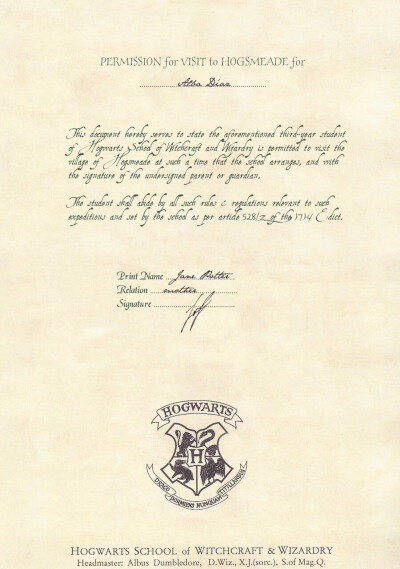 PERMISSION for VISIT to HOGSMEADE for
Alba Díaz
This document hereby serves to state the aforementioned third-year student
of Hogwarts School of Witchcraft and Wizardry is permitted to visit the
village of Hogsmeade at such a time that the school arranges, and with
the signature of the undersigned parent or guardian.
The student shall abide by all such rules & regulations relevant to such
expeditions and set by the school as per article 528/z of the 1714 Edict.
Print Name ... Jane Potter
Relation ... mother
Signature
HOGWARTS
H
DRACO DORMIENS NUNQUAM TITILLANDUS
HOGWARTS SCHOOL of WITCHCRAFT & WIZARDRY
Headmaster: Albus Dumbledore, D.Wiz., X.J.(sorc.), S.of Mag.Q.